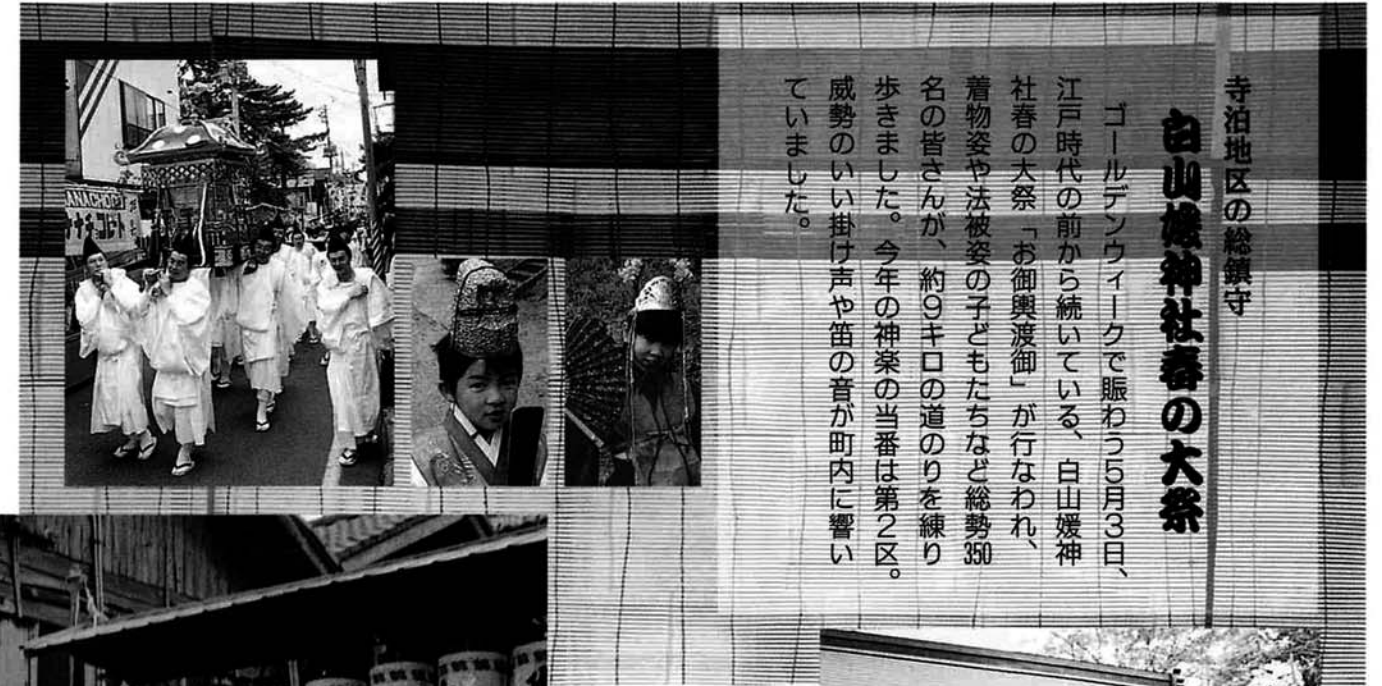 寺泊地区の総鎮守
白山媛神社春の大祭
ゴールデンウィークで賑わう5月3日、
江戸時代の前から続いている、白山媛神
社春の大祭「お御輿渡御」が行なわれ、
着物姿や法被姿の子どもたちなど総勢350
名の皆さんが、約9キロの道のりを練り
歩きました。今年の神楽の当番は第2区。
威勢のいい掛け声や笛の音が町内に響い
ていました。